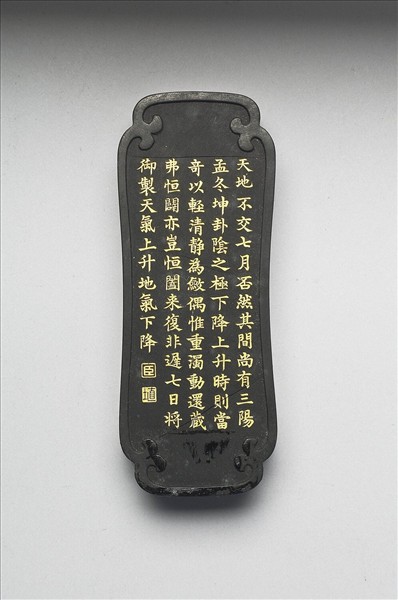 天地不交七月否然其間尚有三陽
孟冬坤卦陰之極下降上升時則當
奇以輕清静為斂偶惟重濁動還藏
弗恒闢亦豈恒闔来復非遲七日将
御製天氣上升地氣下降
臣